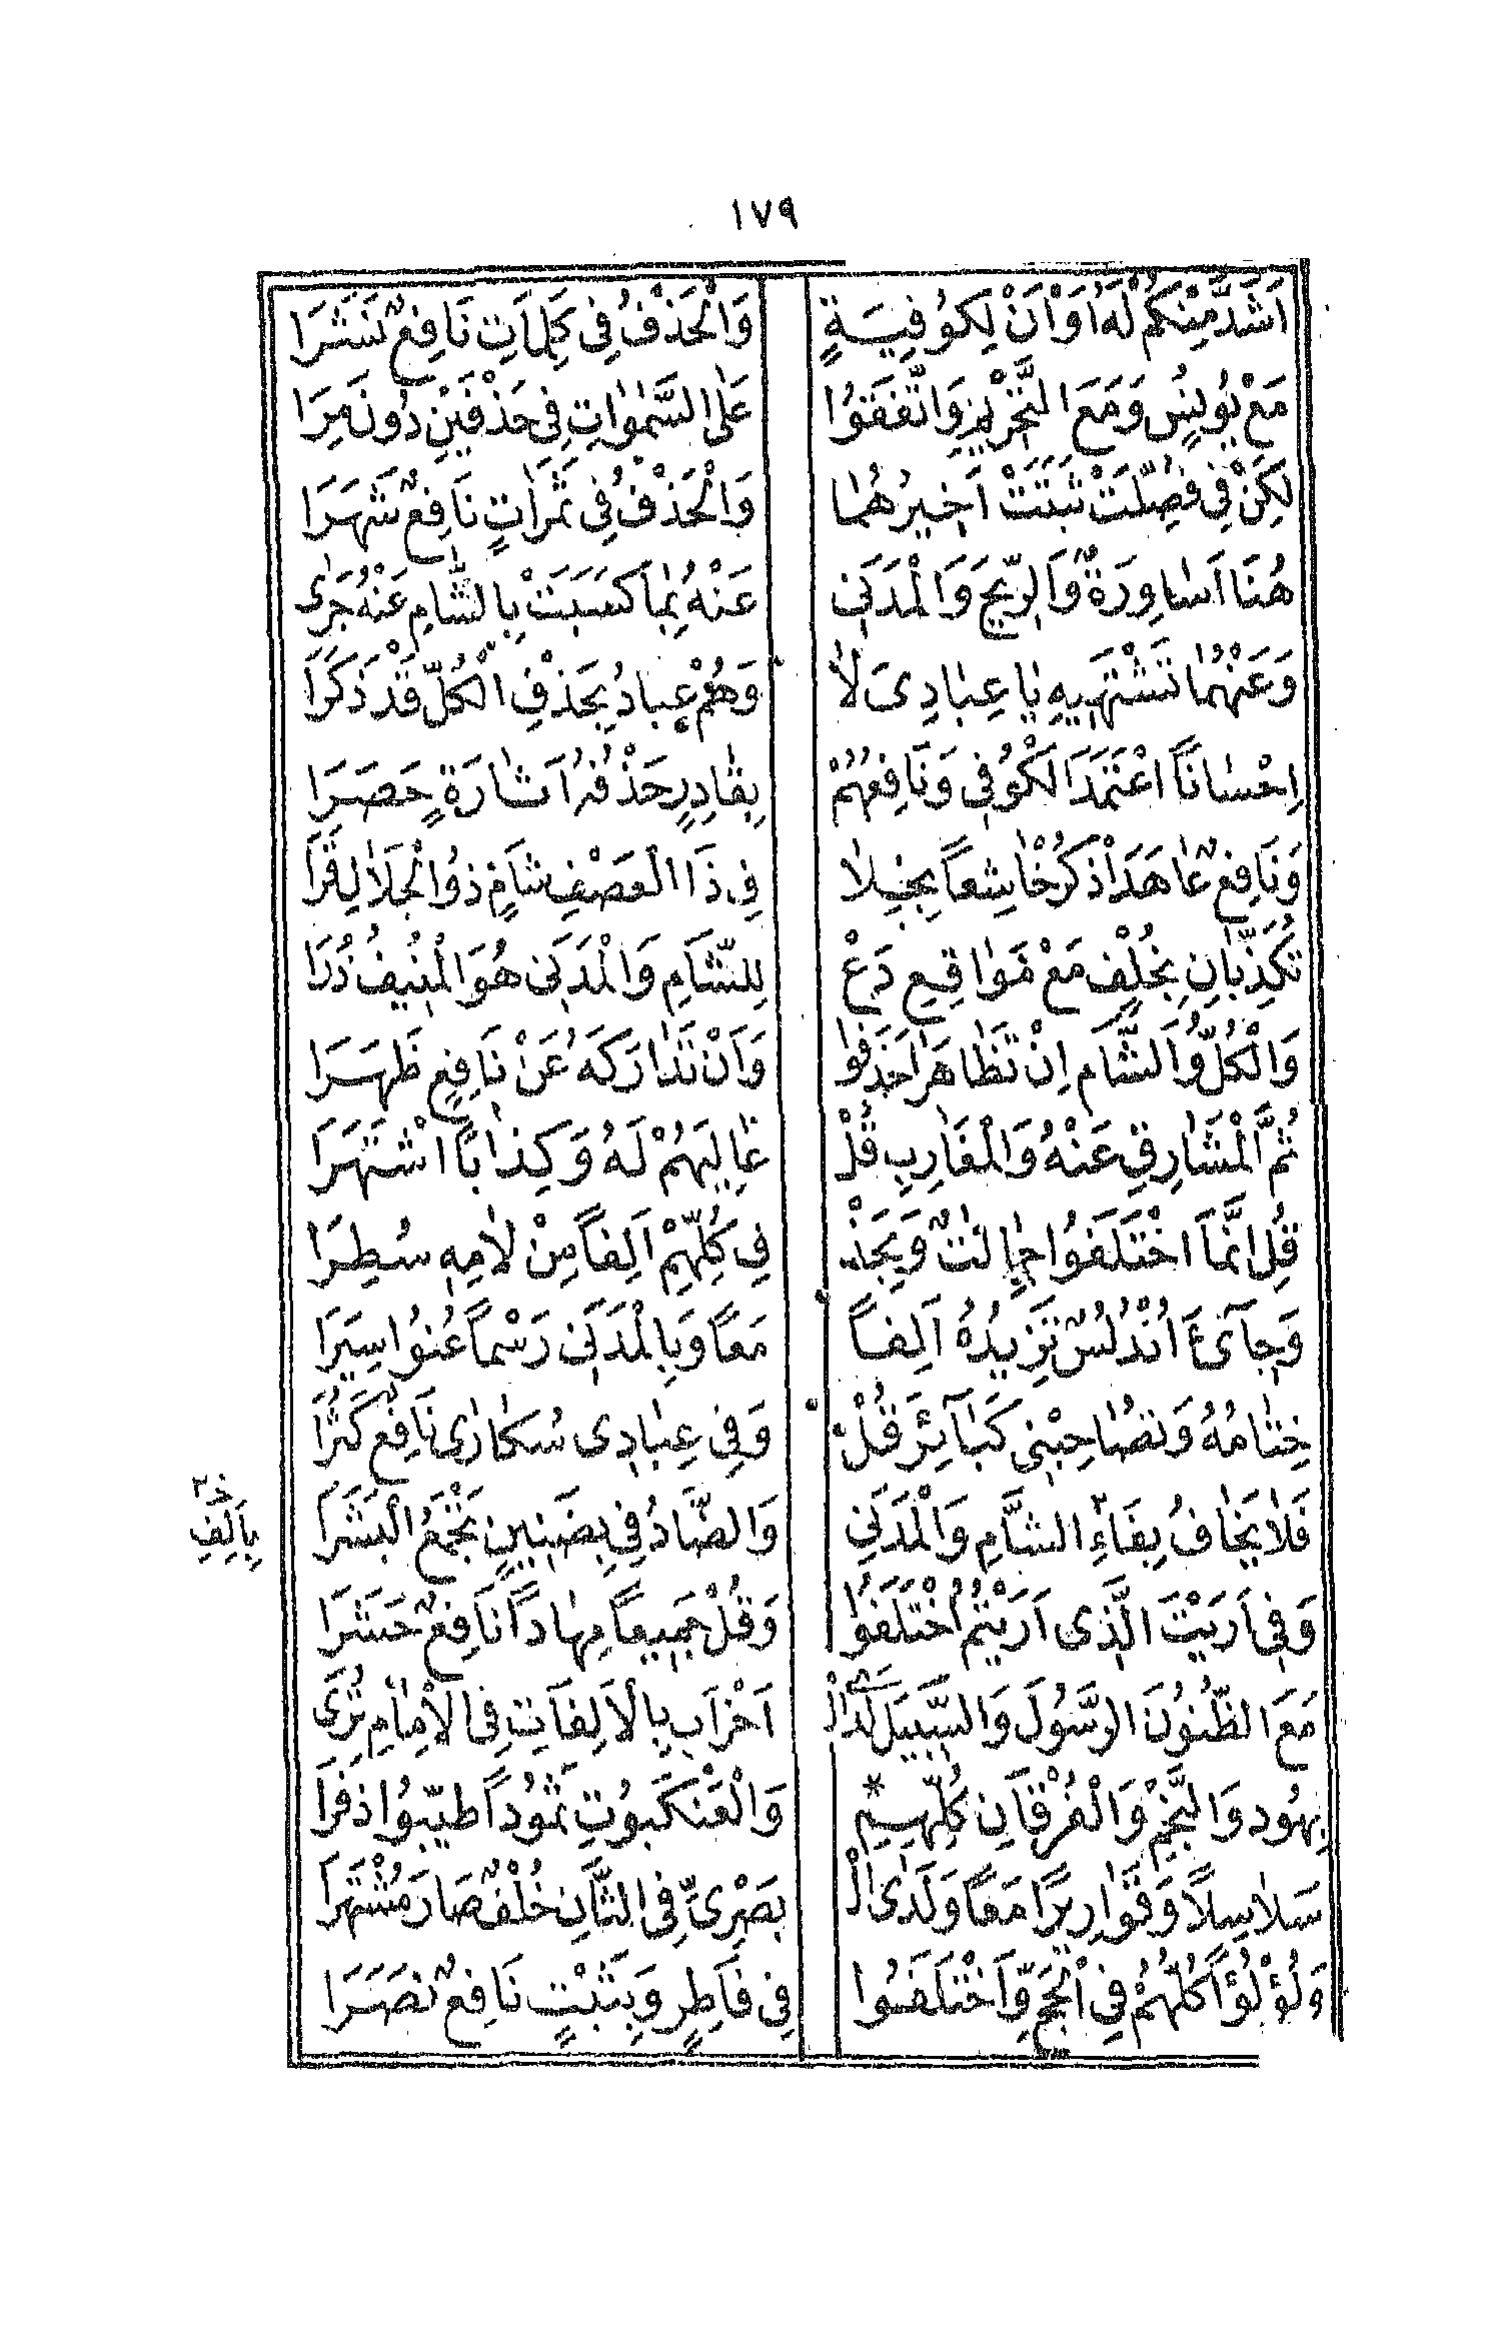 ١٧٩
اَشَدَّ مِنْكُمْ لَهُ اَوْ اَنْ لِكُوُفِيَةٍ وَالْحَذْفُ فِي كَلِمَاتٍ نَافِعٌ نَشَرَا
مَعْ يُونِسٍ وَمَعَ التَّحْرِيْمِ وَاتَّفَقُوُا عَلَى السَّمٰوٰاتِ فِي حَذْفَيْنِ دُونَ مِرَا
لٰكِنْ فِي فُصِّلَتْ ثَبَتَتْ اَخِيرُهُمٰا وَالْحَذْفُ فِي ثَمَرٰاتٍ نَافِعٌ شَهَرَا
هُنَا اَسٰاوِرَةٌ وَالرِّيحَ وَالْمَدَنِي عَنْهُ بِمٰا كَسَبَتْ بِالشَّامِ عَنْهُ جَرٰى
وَعَنْهُمٰا تَشْتَهِيهِ يٰا عِبٰادِىَ لاٰ وَهُمْ عِبادُ بِحَذْفِ الْكُلِّ قَدْ ذَكَرَا
اِحْسٰانًا اعْتَمَدَ الْكُوُفِي وَنَافِعُهُمْ بِقٰادِرٍ حَذْفُهُ اَثٰارَةٍ حَصَرَا
وَنَافِعٌ عٰاهَدَ اذْكُرْ خٰاشِعًا بِخِلاٰ فِي ذَا الْعَصْفِ شَامٍ ذُو الْجَلاٰلِ قَرَا
تُكَذِّبٰانِ بِخُلْفٍ مَعْ مَوٰاقِعِ دَعْ لِلشَّامِ وَالْمَدَنِي هُوَ الْمُنِيفُ ذُرَا
وَالْكُلُّ وَالشَّامِ اِنْ تَظٰاهَرٰا حَذَفُوا وَاَنْ تَدٰارَكَهُ عَنْ نَافِعٍ ظَهَرَا
ثُمَّ الْمَشٰارِقِ عَنْهُ وَالْمَغٰارِبِ قُلْ عٰالِيَهُمْ لَهُ وَكِذٰابًا اشْتَهَرَا
قُلْ اِنَّمَا اخْتَلَفُوُا جِمٰالَتٌ وَبِحَذْ فِ كُلِّهِمْ اَلِفًا مِنْ لاٰمِهِ سُطِرَا
وَجِآىءَ اُنْدُلُسٌ تَزِيدُهُ اَلِفًا مَعًا وَبِالْمَدَنِي رَسْمًا عُنُوا سِيَرَا
خِتٰامُهُ وَتُصٰاحِبْنِي كَبٰآئِرَ قُلْ وَفِي عِبٰادِى سُكٰارٰى نَافِعٌ كَثُرَا
فَلاٰ يَخٰافُ بِفَاءِ الشَّامِ وَالْمَدَنِي وَالضَّادُ فِي بِضَنِينٍ تَجْمَعُ الْبَشَرَا
بِاَلِفِ
وَفِي اَرَيْتَ الَّذِى اَرَيْتُمُ اخْتَلَفُوُا وَقُلْ جَمِيعًا مِهٰادًا نَافِعٌ حَشَرَا
مَعَ الظُّنُونَ الرَّسُولَ وَالسَّبِيلَ لَدَا الْ اَحْزَابِ بِالْاَلِفَاتِ فِي الْاِمٰامِ تُرٰى
بِهُودَ وَالنَّجْمِ وَالْفُرْقَانِ كُلِّهِمِ * وَالْعَنْكَبُوُتِ ثَمُوُدًا طَيِّبُوُا ذَفَرَا
سَلاٰسِلاً وَقَوٰارِيرًا مَعًا وَلَدَى الْ بَصْرِىِّ فِي الثَّانِ خُلْفٌ صَارَ مُشْتَهَرَا
وَلُؤْلُؤًا كُلُّهُمْ فِي الْحَجِّ وَاخْتَلَفُوُا فِي فَاطِرٍ وَبِثَبْتٍ نَافِعٌ نَصَرَا